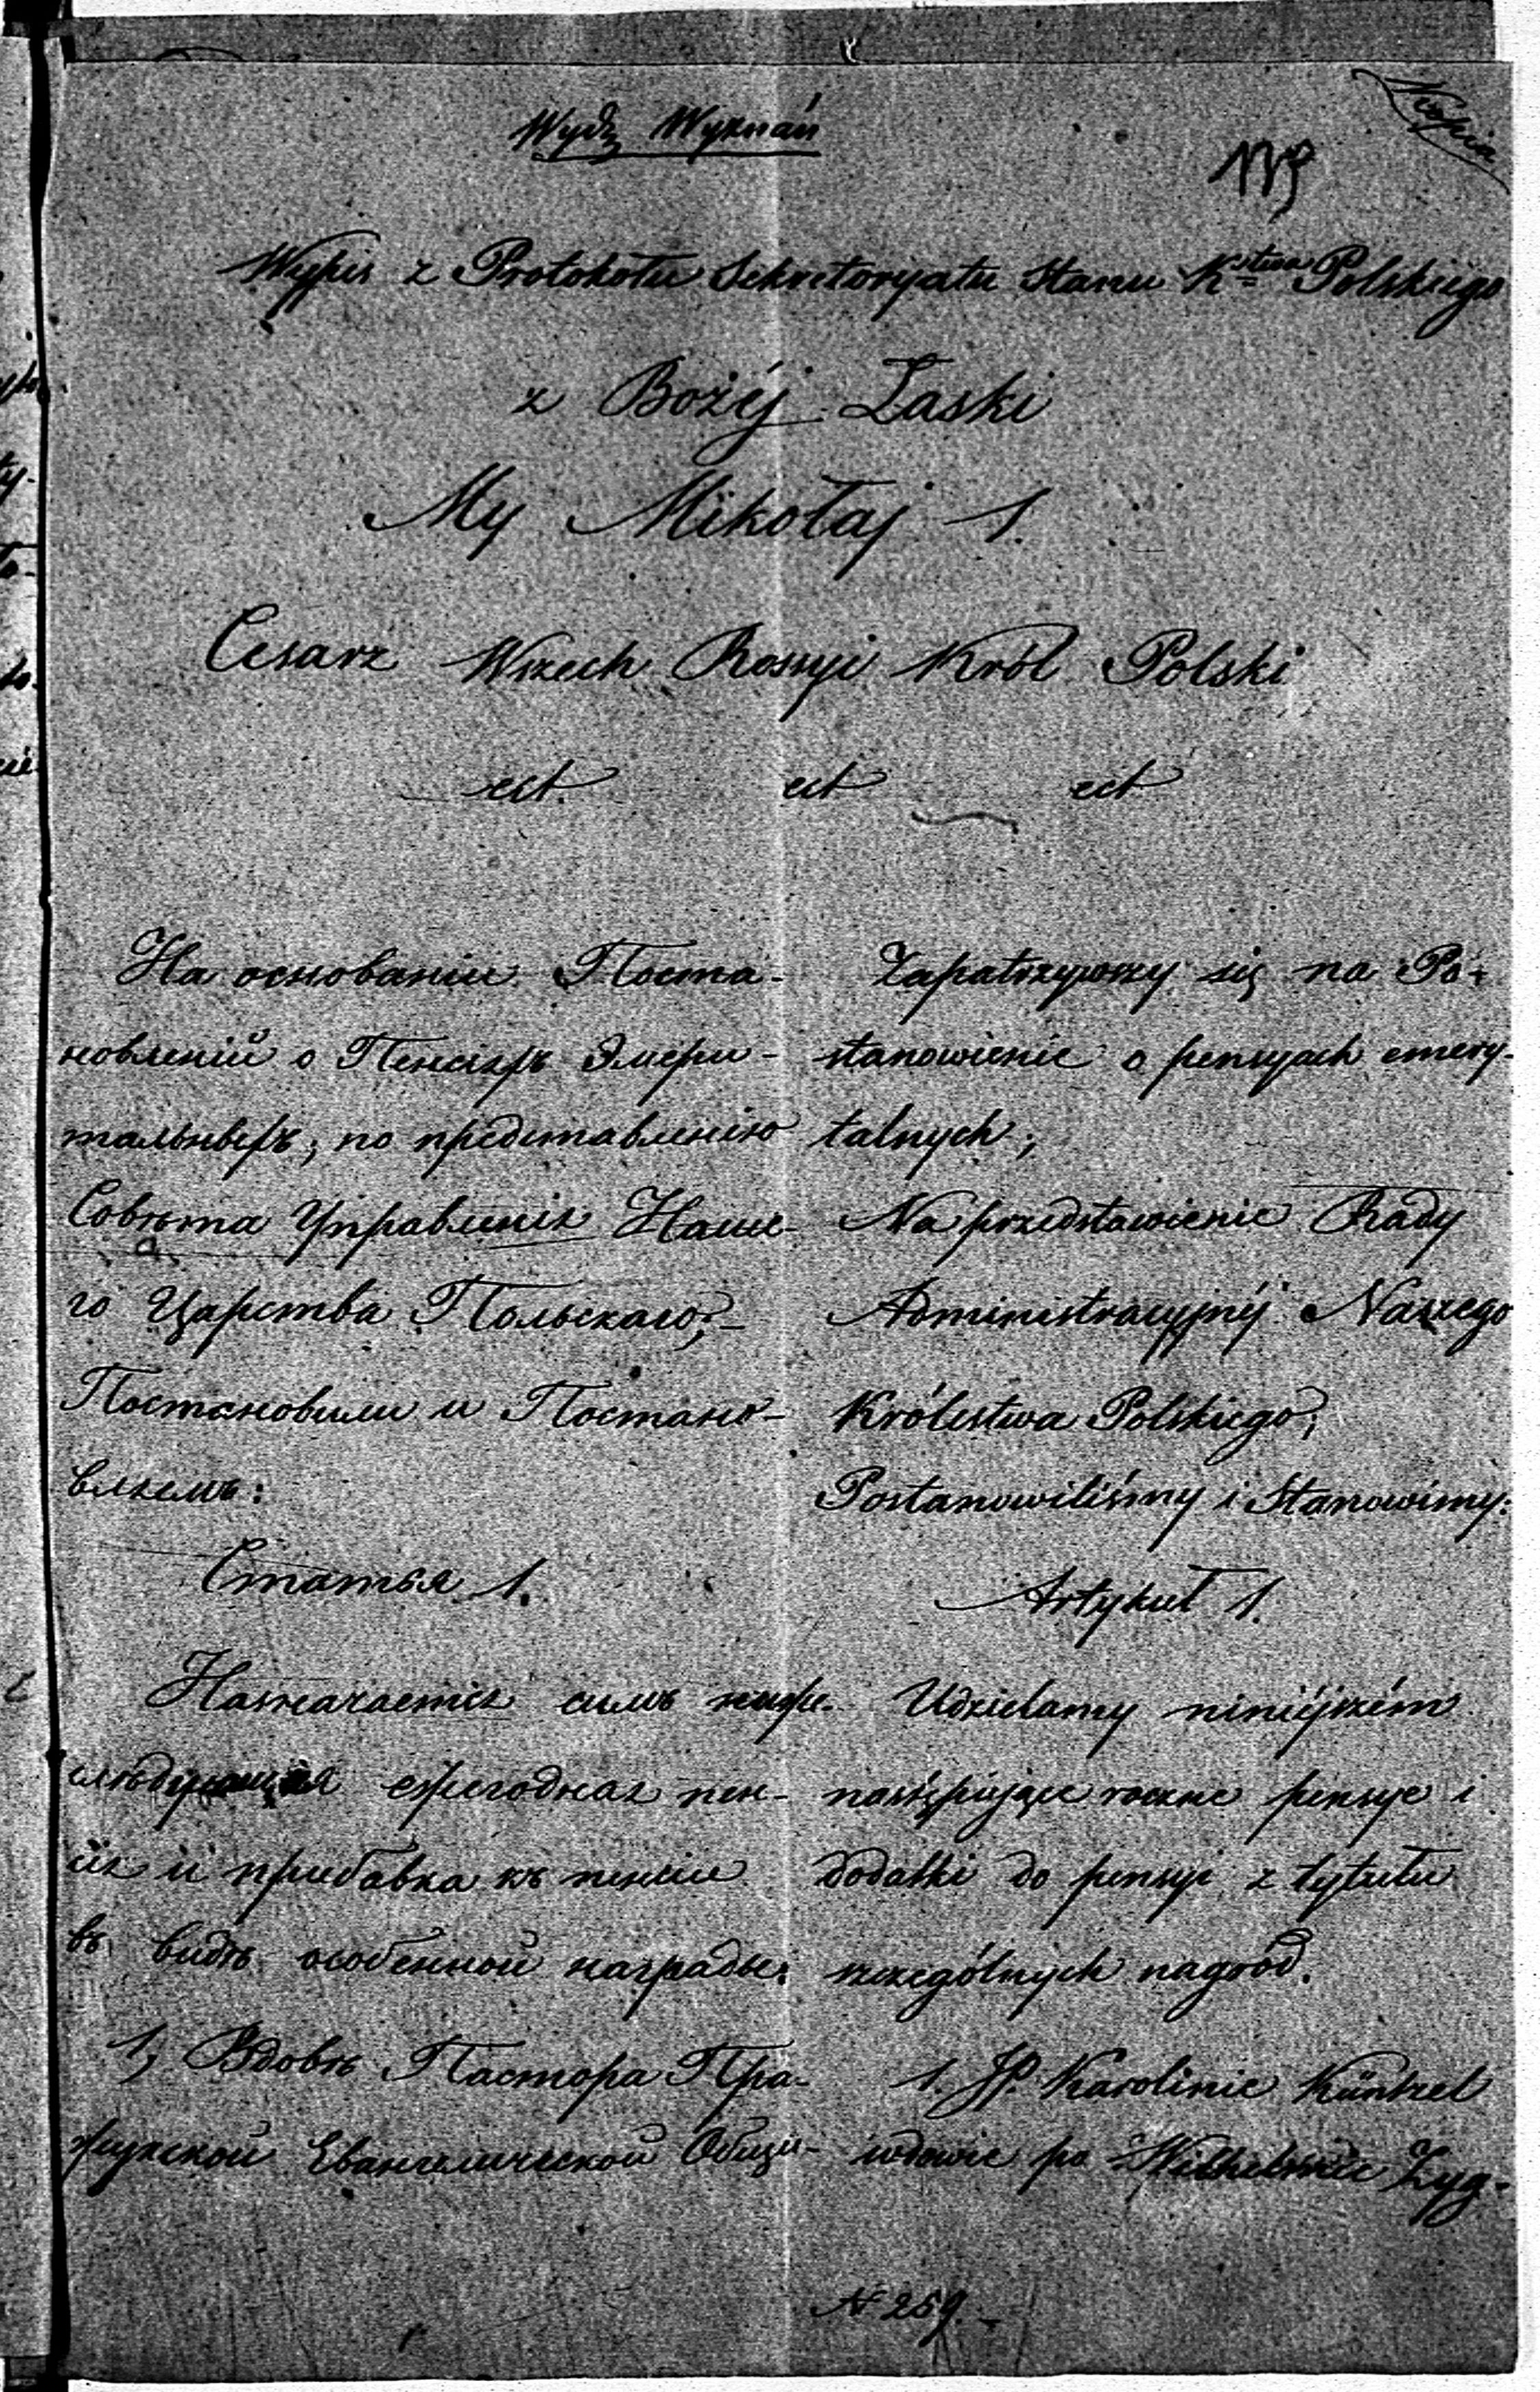 Kopia
Wydz Wyznań
Wypis z Protokołu Sekretaryatu Stanu K<sup>stwa</sup> Polskiego
z Bożéj Łaski
My Mikołaj 1.
Cesarz Wszech Rossyi Król Polski
ect. ect ect
На основаніи Поста-
новленій о Пенсіяхъ Эмери-
тальныхъ; по представленію
Совѣта Управленія Наше-
го Царства Польскаго;-
Постановили и Постано-
вляемъ:
Статья 1.
Назначается симъ ниже-
слѣдующая ежегодная пен-
сія и прибавка къ пенсіи
въ видѣ особенной награды:
1, Вдовѣ Пастора Пра-
жукской Евангелической Общи-
Zapatrzywszy się na Po-
stanowienie o pensyach emery-
talnych;
Na przedstawienie Rady
Administracyjnéj Naszego
Królestwa Polskiego;
Postanowiliśmy i Stanowimy:
Artykuł 1.
Udzielamy niniéjszém
następujące roczne pensye i
dodatki do pensyi z tytułu
szczególnych nagród.
1. JP. Karolinie Küntzel
wdowie po Wilhelmie Zyg-
N 259.